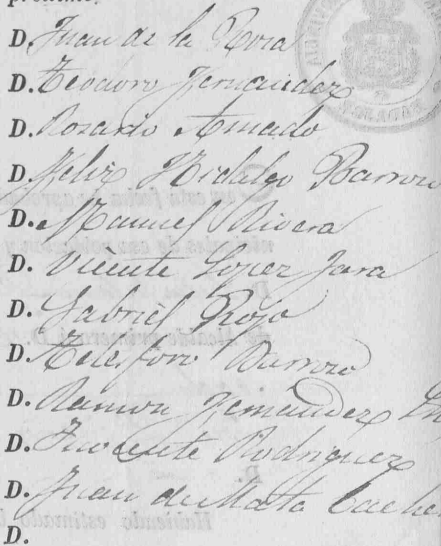 D. Juan de la Rosa
D. Teodoro Fernandez
D. Rosario Amado
D. Felix Hidalgo Barroso
D. Manuel Rivera
D. Vicente Lopez Jara
D. Gabriel Rojo
D. Telesforo Barroso
D. Ramon Fernandez
D. Inocente Rodriguez
D. Juan de Mata
D.